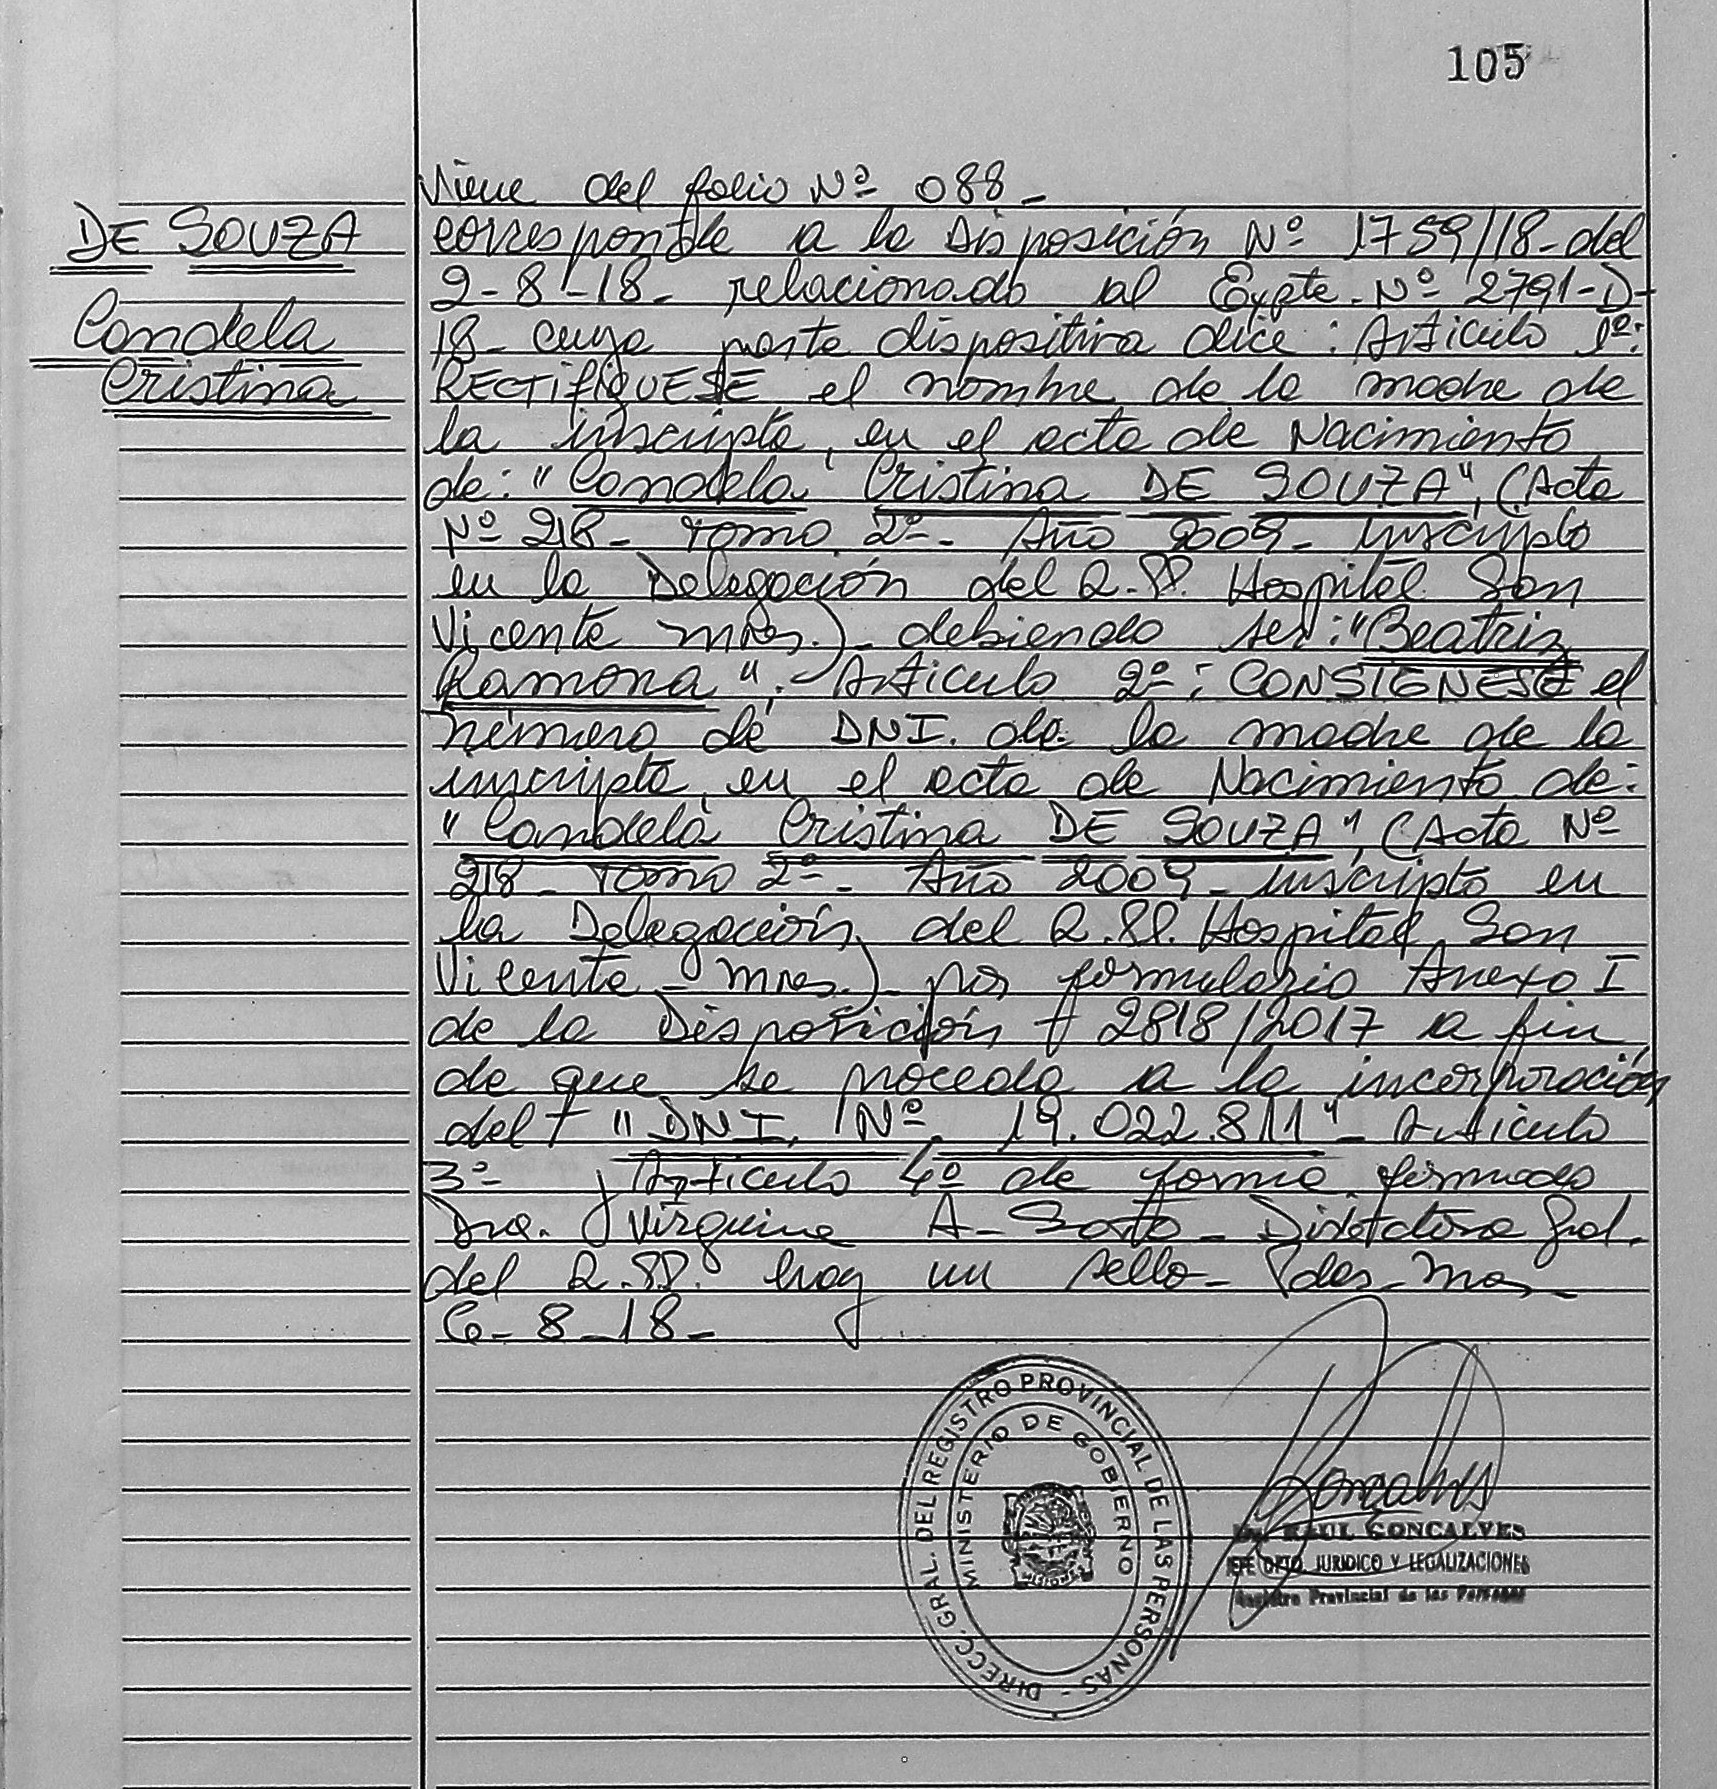 105
DE SOUZA
Candela
Cristina
Viene del folio Nº 088-
correspondte a la Disposición Nº 1759/18- del
2-8-18- relacionado al Expte. Nº 2791-D-
18- cuya parte dispositiva dice: Artículo 1º:
RECTIFIQUESE el nombre de la madre de
la inscripta, en el acta de Nacimiento
de: "Candela Cristina DE SOUZA", (Acta
Nº 218- Tomo 2º- Año 2009- inscripta
en la Delegación del R.PP. Hospital San
Vicente Mnes.)- debiendo ser: "Beatriz
Ramona".- Artículo 2º: CONSIGNESE el
número de DNI. de la madre de la
inscripta, en el acta de Nacimiento de:
"Candela Cristina DE SOUZA", (Acta Nº
218- Tomo 2º- Año 2009- inscripta en
la Delegación del R.PP. Hospital San
Vicente - Mnes.)- por formulario Anexo I
de la Disposición 2818/2017 a fin
de que se proceda a la incorporación
del "DNI. Nº. 19.022.811"- Artículo
3º y Artículo 4º de forma firmado
Dra. Virginia A- Soto- Directora Gral.
del R.PP. hay un sello- Pdas- Mnes-
6-8-18-
DIRECC. GRAL. DEL REGISTRO PROVINCIAL DE LAS PERSONAS -
MINISTERIO DE GOBIERNO
MISIONES
Goncalves
RAUL GONCALVES
JEFE DPTO. JURIDICO Y LEGALIZACIONES
Registro Provincial de las Personas